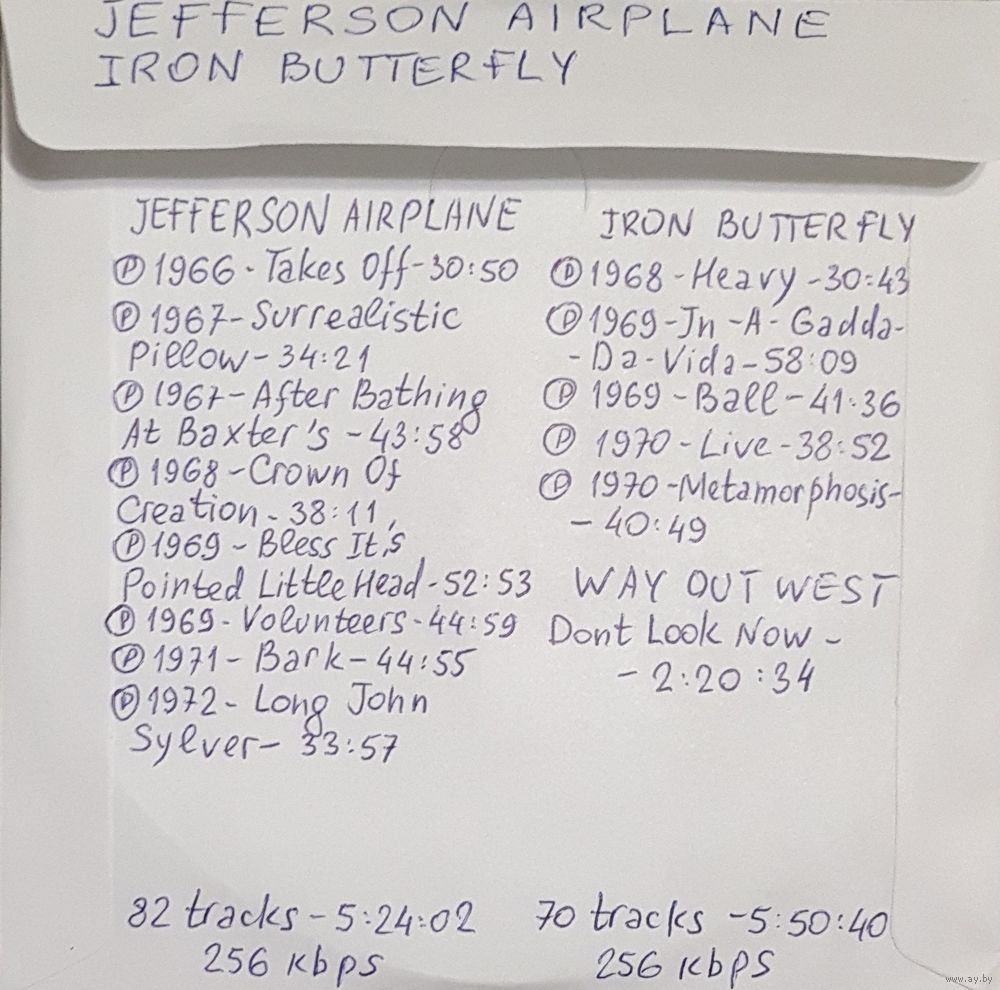 JEFFERSON AIRPLANE
IRON BUTTERFLY
JEFFERSON AIRPLANE
Ⓟ 1966 - Takes Off - 30:50
Ⓟ 1967 - Surrealistic
Pillow - 34:21
Ⓟ 1967 - After Bathing
At Baxter's - 43:58
Ⓟ 1968 - Crown Of
Creation - 38:11,
Ⓟ 1969 - Bless It,s
Pointed Little Head - 52:53
Ⓟ 1969 - Volunteers - 44:59
Ⓟ 1971 - Bark - 44:55
Ⓟ 1972 - Long John
Sylver - 33:57
82 tracks - 5:24:02
256 kbps
IRON BUTTERFLY
Ⓟ 1968 - Heavy - 30:43
Ⓟ 1969 - In - A - Gadda-
- Da - Vida - 58:09
Ⓟ 1969 - Ball - 41:36
Ⓟ 1970 - Live - 38:52
Ⓟ 1970 - Metamorphosis-
- 40:49
WAY OUT WEST
Dont Look Now -
- 2:20:34
70 tracks - 5:50:40
256 kbps
www.ay.by